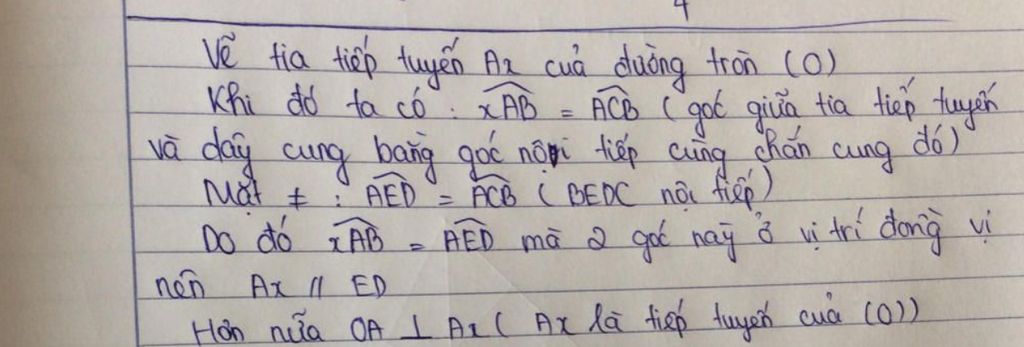 4
Vẽ tia tiếp tuyến Ax của đường tròn (O)
Khi đó ta có : xAB = ACB (góc giữa tia tiếp tuyến
và dây cung bằng góc nội tiếp cùng chắn cung đó)
Mặt ≠ : AED = ACB (BEDC nội tiếp)
Do đó xAB = AED mà 2 góc này ở vị trí đồng vị
nên Ax // ED
Hơn nữa OA ⊥ Ax ( Ax là tiếp tuyến của (O))